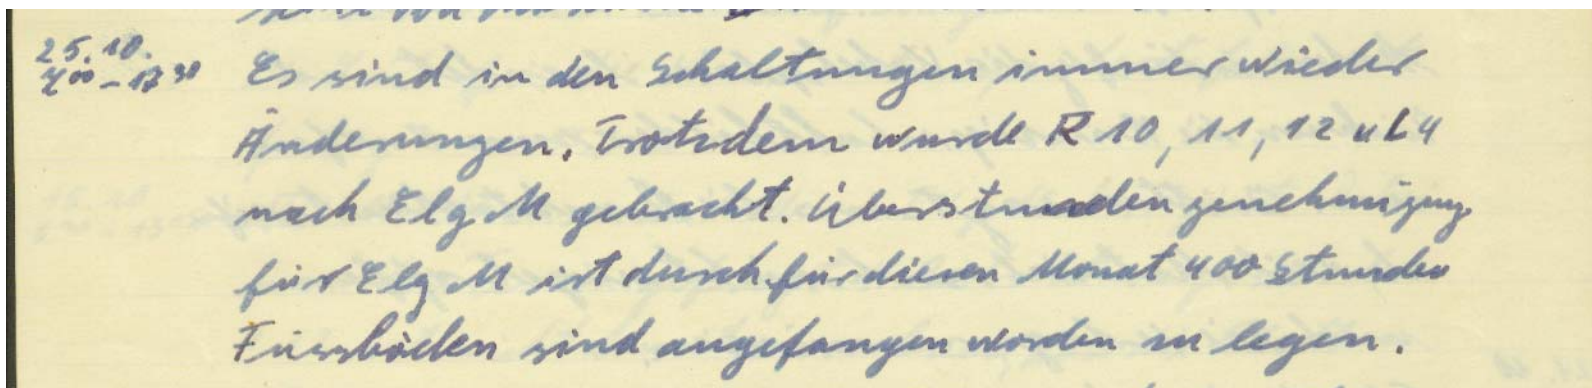 25.10.
4⁰⁰ – 17³⁰ Es sind in den Schaltungen immer wieder
Änderungen. Trotzdem wurde R 10, 11, 12 u L4
nach Elg M gebracht. Überstunden genehmigung
für Elg M ist durch. für diesen Monat 400 Stunden
Fussböden sind angefangen worden zu legen.